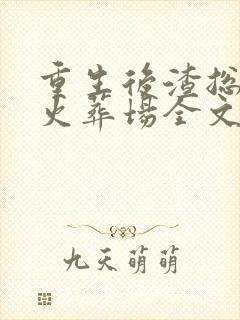 重生後渣总
火葬场全文
九天萌萌